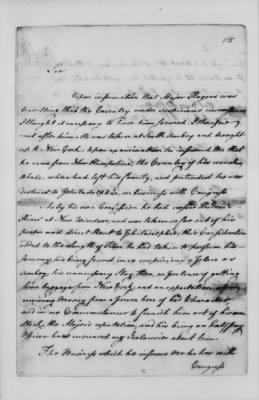 115
Sir
Upon information that Major Rogers was
travelling thro the Country under suspicious circumstances
I thought it necessary to have him secured. I therefore
sent after him. He was taken at South Amboy and brought
up to New York. Upon examination he informed me that
he came from New Hampshire, the Country of his usual
abode, where he had left his family, and pretended he was
destined to Philadelphia on business with Congress
As by his own Confession he had crossed Hudson's
River at New Windsor, and was taken so far out of his
proper and direct Rout to Philadelphia, this Consideration
added to the length of Time he had taken to perform his
Journey, his being found in so suspicious a Place as
Amboy, his unnecessary Stay there, on pretence of getting
some baggage from New York, and an expectation of
receiving Money from a person here of bad Character,
and in no Circumstances to furnish him out of his own
Stock, the Major's reputation, and his being an half pay
Officer have increased my Jealousies about him.
The Business which he informs me he has with
Congress